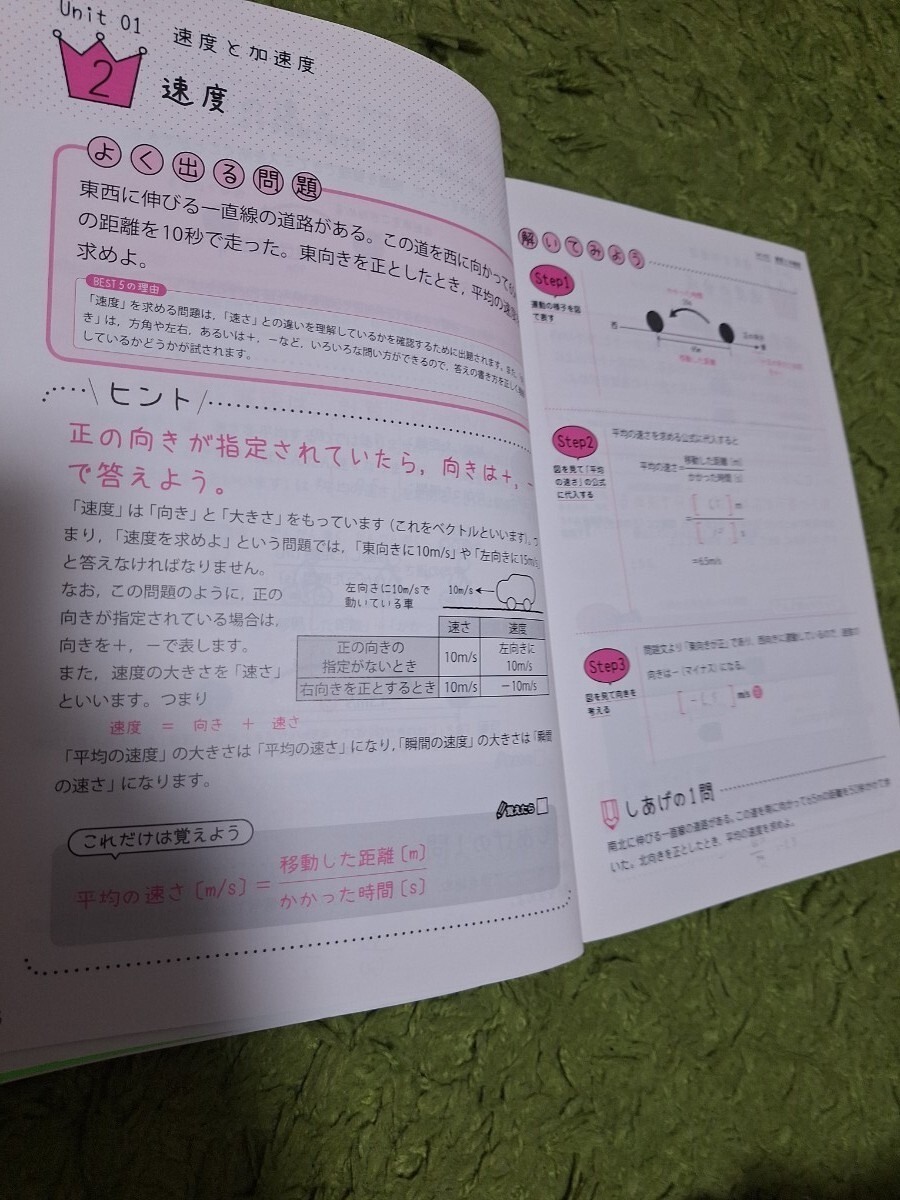 Unit 01 速度と加速度
2 速度
よく出る問題
東西に伸びる一直線の道路がある。この道を西に向かって
の距離を10秒で走った。東向きを正としたとき，平均の速度
求めよ。
BEST 5の理由
「速度」を求める問題は，「速さ」との違いを理解しているかを確認するために出題されます。また，
き」は，方角や左右，あるいは＋，－など，いろいろな問い方ができるので，答えの書き方を正しく
しているかどうかが試されます。
ヒント
正の向きが指定されていたら，向きは＋，－
で答えよう。
「速度」は「向き」と「大きさ」をもっています（これをベクトルといいます）。つ
まり，「速度を求めよ」という問題では，「東向きに10m/s」や「左向きに15m/s」
と答えなければなりません。
なお，この問題のように，正の
向きが指定されている場合は，
向きを＋，－で表します。
また，速度の大きさを「速さ」
といいます。つまり
左向きに10m/sで
動いている車
10m/s
速さ 速度
正の向きの
指定がないとき 10m/s 左向きに
10m/s
右向きを正とするとき 10m/s －10m/s
速度 ＝ 向き ＋ 速さ
「平均の速度」の大きさは「平均の速さ」になり，「瞬間の速度」の大きさは「瞬間
の速さ」になります。
覚えたら
これだけは覚えよう
平均の速さ〔m/s〕＝ 移動した距離〔m〕
かかった時間〔s〕
解いてみよう
Step1
運動の様子を図
で表す
西
移動した距離
Step2
図を見て「平均
の速さ」の公式
に代入する
平均の速さを求める公式に代入すると
平均の速さ＝ 移動した距離〔m〕
かかった時間〔s〕
＝ m
s
＝6.5m/s
Step3
図を見て向きを
考える
問題文より「東向きが正」であり，西向きに運動しているので，速度の
向きは－（マイナス）になる。
m/s
しあげの1問
南北に伸びる一直線の道路がある。この道を南に向かって65mの距離を50秒かけて歩
いた。北向きを正としたとき，平均の速度を求めよ。